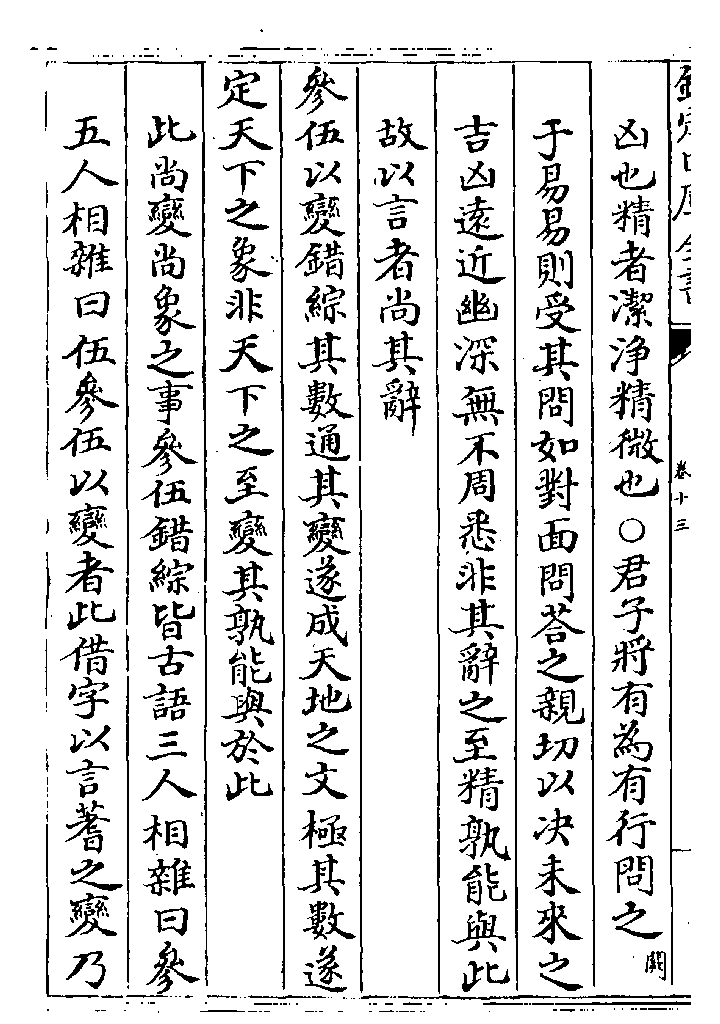 欽定四庫全書
卷十三
凶也精者潔淨精微也○君子將有為有行問之闕
于易易則受其問如對面問荅之親切以决未來之
吉凶遠近幽深無不周悉非其辭之至精孰能與此
故以言者尚其辭
參伍以變錯綜其數通其變遂成天地之文極其數遂
定天下之象非天下之至變其孰能與於此
此尚變尚象之事參伍錯綜皆古語三人相雜曰參
五人相雜曰伍參伍以變者此借字以言蓍之變乃